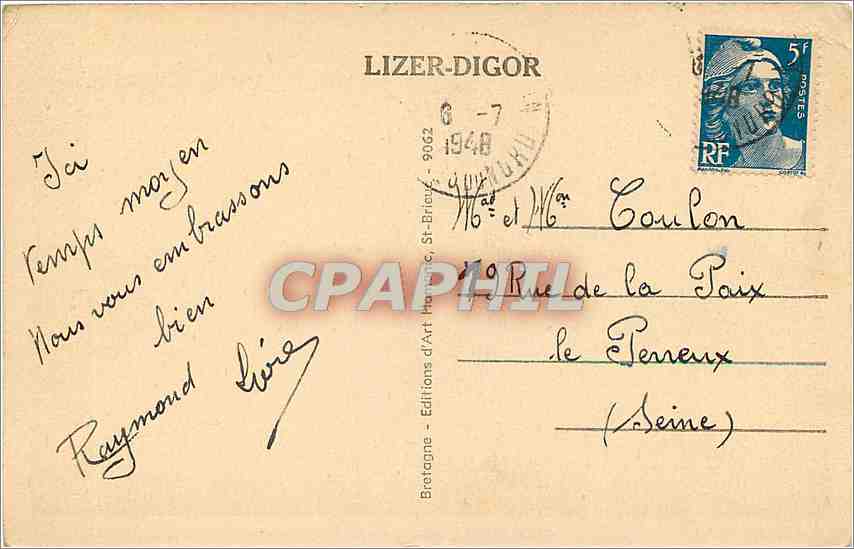 LIZER-DIGOR
5F
POSTES
RF
6 -7
1948
Ici
temps moyen
Nous vous embrassons
bien
Raymond
Bretagne - Editions d'Art Hamonic, St-Brieuc - 9062
Mad et Mon Coulon
Rue de la Paix
le Perreux
(Seine)
CPAPHIL